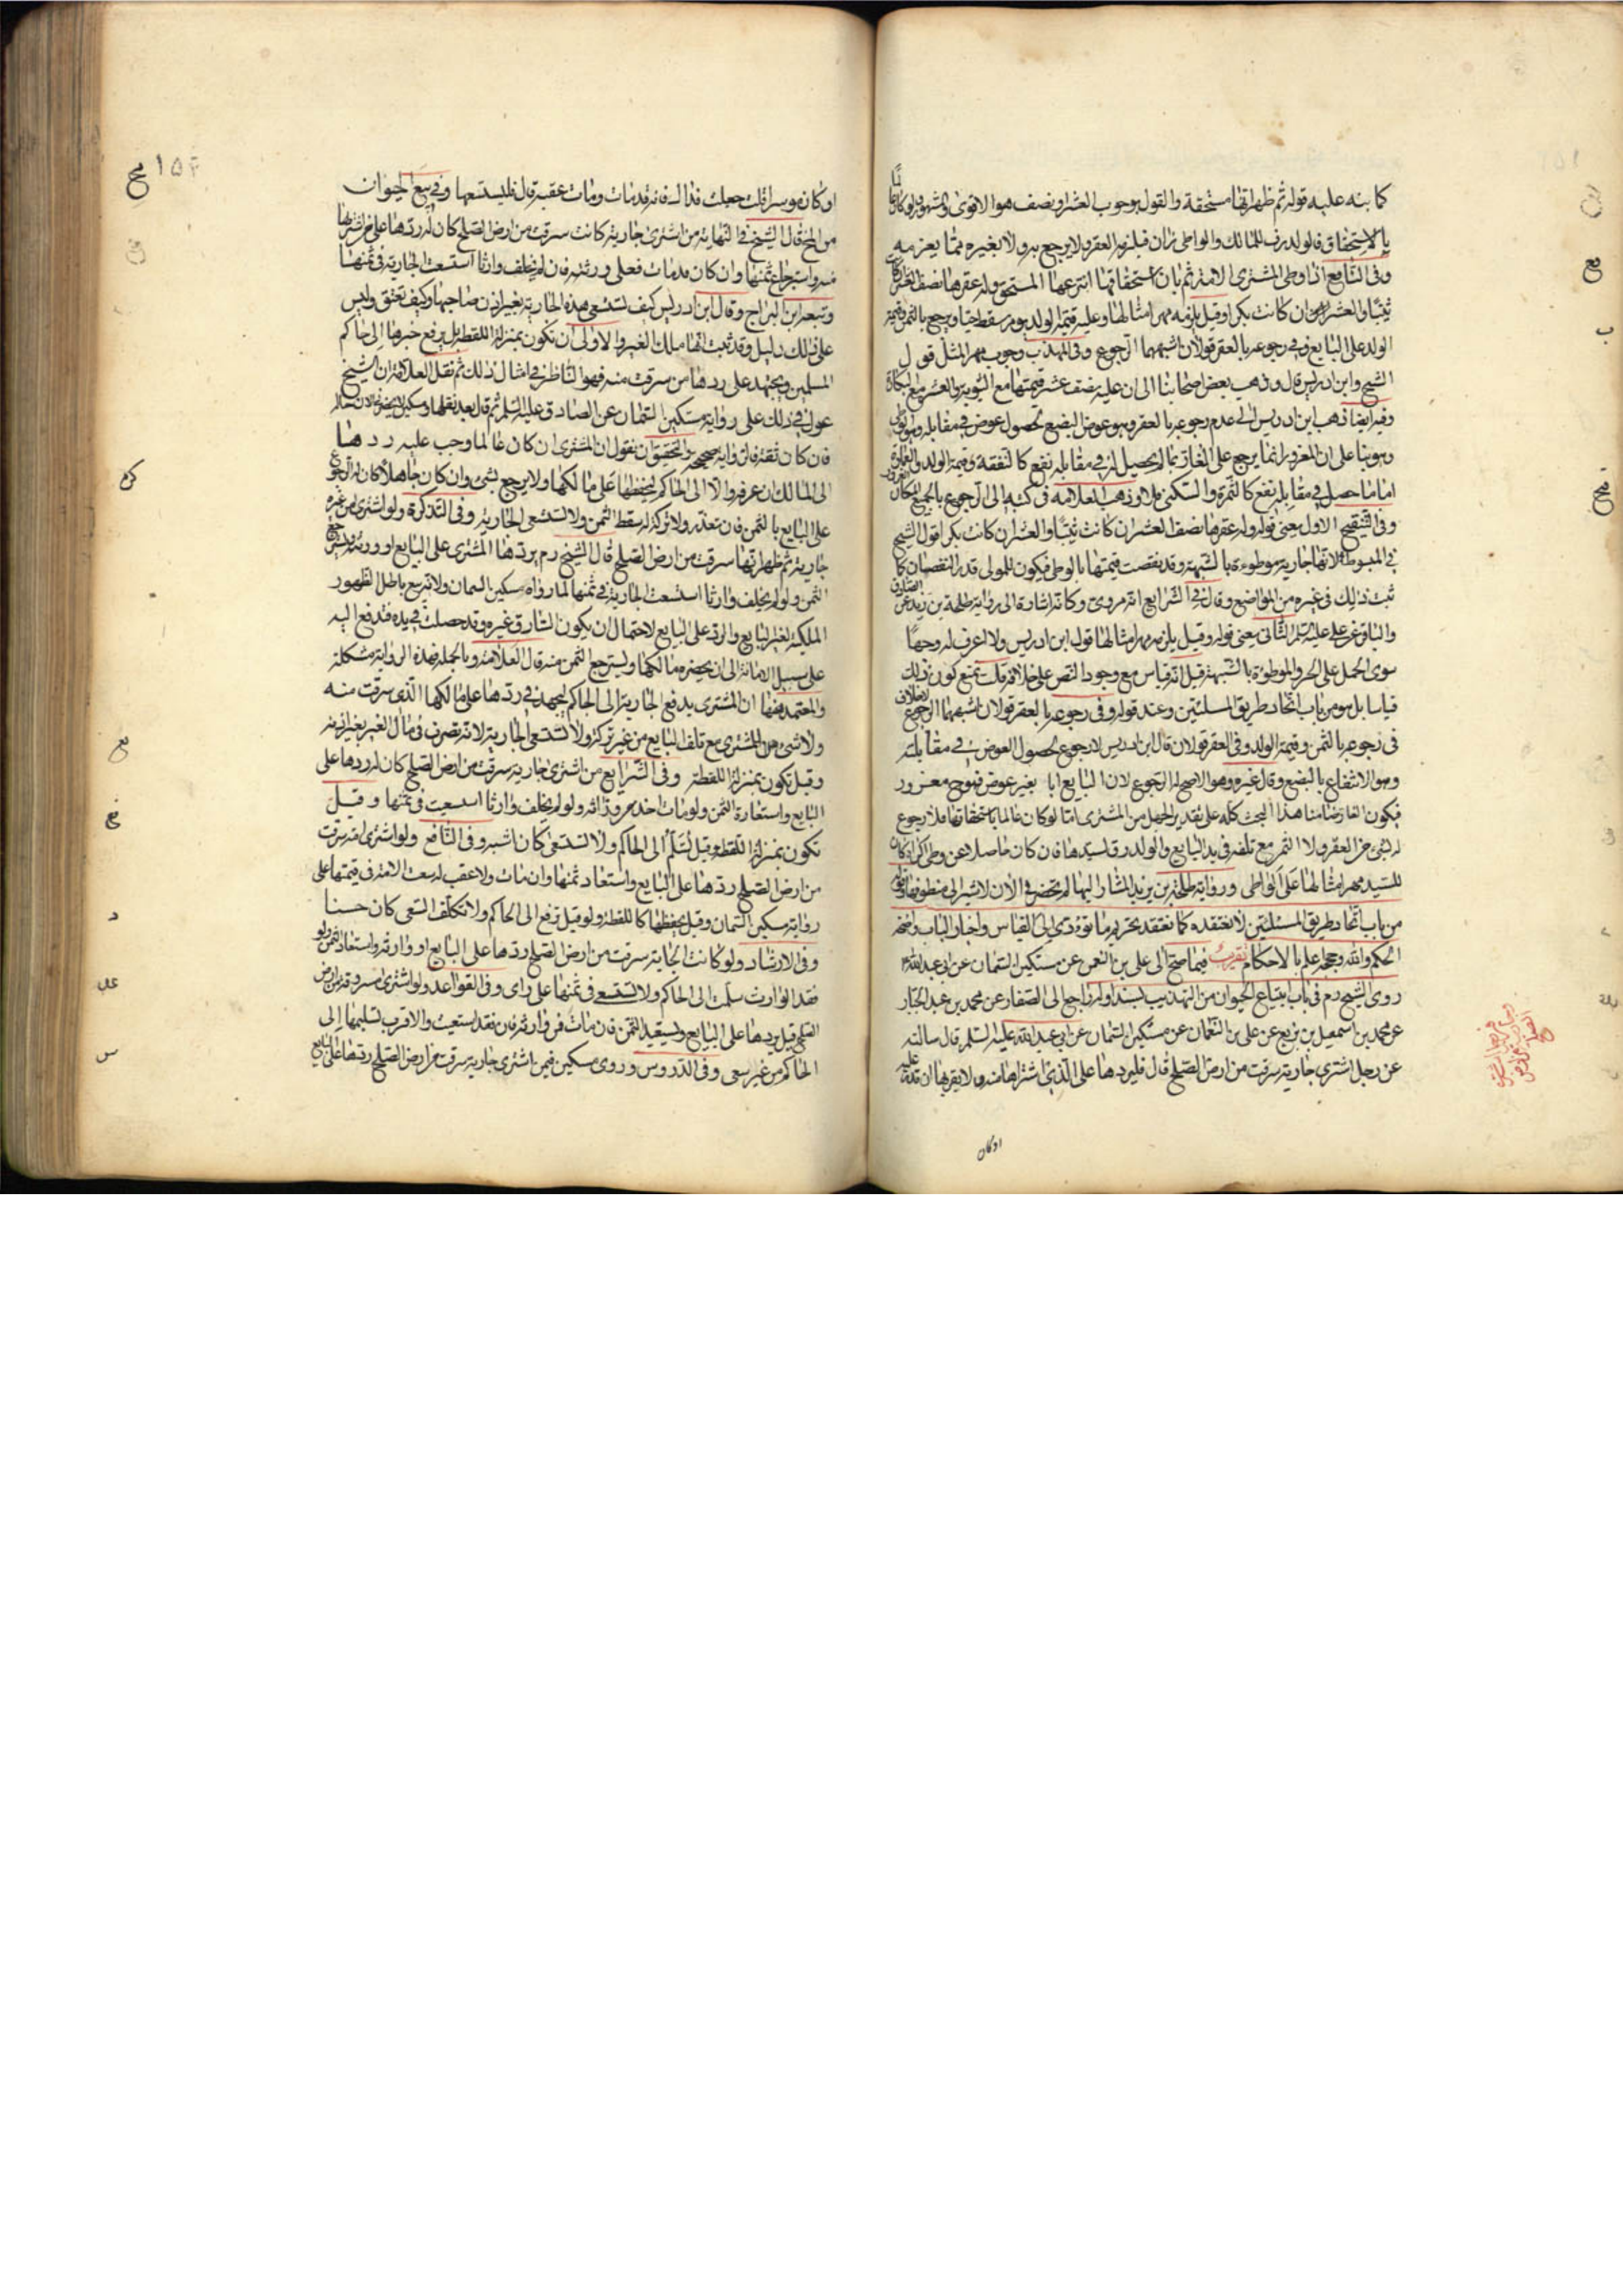 كما نبه عليه قوله ثم ظهر انها مستحقة والقول بوجوب العشر او نصف هو الاقوى والمشهور ولو كان عالما
بالاستحقاق فالولد رق للمالك والواطى زان فيلزمه العقر ولا يرجع به ولا بغيره مما يغرمه
وفى النافع اذا وطى المشترى الامة ثم بان استحقاقها انتزعها المستحق وله عقرها نصف العشر ان كانت
ثيبا والعشر ان كانت بكرا وقيل يلزمه مهر امثالها وعليه قيمة الولد يوم سقط حيا ويرجع بالثمن وقيمة
الولد على البايع وفى رجوعه بالعقر قولان اشبههما الرجوع وفى المهذب وجوب مهر المثل قول
الشيخ وابن ادريس قال وذهب بعض اصحابنا الى ان عليه نصف عشر قيمتها مع الثيوبة والعشر مع البكارة
وفيه ايضا ذهب ابن ادريس الى عدم رجوعه بالعقر وهو عوض البضع لحصول عوض فى مقابله وهو الوطى
وهو بنا على ان المغرور انما يرجع على الغار بما لم يحصل له فى مقابله نفع كالنفقة وقيمة الولد والعمارة
اما ما حصل فى مقابله نفع كالثمرة والسكنى فلا وذهب العلامه فى كتبه الى الرجوع بالجميع لمكان الغرور
وفى التنقيح الاول يعنى قوله وله عقرها نصف العشر ان كانت ثيبا والعشر ان كانت بكرا قول الشيخ
فى المبسوط لانها جارية موطوءة بالشبهة وقد نقصت قيمتها بالوطى فيكون للمولى قدر النقصان كما
ثبت ذلك فى غيره من المواضع وقال فى الشرايع انه مروى وكانه اشارة الى رواية طلحة بن زيد عن الصادق
والباقر عن على عليه السلم الثانى يعنى قوله وقيل يلزمه مهر امثالها قول ابن ادريس ولا اعرف له وجها
سوى الحمل على الحر والموطوءة بالشبهة قيل انه قياس مع وجود النص على خلافه قلت نمنع كون ذلك
قياسا بل هو من باب اتحاد طريق المسئلتين وعند قوله وفى رجوعه بالعقر قولان اشبههما الرجوع لا خلاف
فى رجوعه بالثمن وقيمة الولد وفى العقر قولان قال ابن ادريس لا رجوع لحصول العوض فى مقابلته
وهو الانتفاع بالبضع وقال غيره وهو الاصح له الرجوع لان البايع اباحه بغير عوض فهو مغرور
فيكون الغار ضامنا هذا البحث كله على تقدير الجهل من المشترى اما لو كان عالما باستحقاقها فلا رجوع
له بشئ من العقر ولا الثمن مع تلفه فى يد البايع والولد رق لسيدها فان كان حاصلا عن وطى اكراه كان
للسيد مهر امثالها على الواطى ورواية طلحة بن يزيد المشار اليها لم تحضر فى الان لاشير الى منطوقها وقوله
من باب اتحاد طريق المسئلتين لا نعتقده كما نعتقد تحريم ما تؤدى الى القياس واخبار الباب واضحة
الحكم والله وحججه اعلم بالاحكام تقريب فيما صح الى على بن النعمن عن مسكين السمان عن ابى عبدالله ع
روى الشيخ رم فى باب ابتياع الحيوان من التهذيب بسند اوله راجع الى الصفار عن محمد بن عبد الجبار
عن محمد بن اسمعيل بن بزيع عن على بن النعمان عن مسكين السمان عن ابى عبد الله عليه السلم قال سالته
عن رجل اشترى جارية سرقت من ارض الصلح قال فليردها على الذى اشتراها منه ولا يقربها ان قدر عليه
او كان
او كان موسرا قلت جعلت فداك فانه قد مات ومات عقبه قال فليستسعها وفى بيع الحيوان
من لمخ قال الشيخ فى النهاية من اشترى جارية كانت سرقت من ارض الصلح كان له ردها على من اشتراها
منه واسترجاع ثمنها وان كان قد مات فعلى ورثته فان لم يخلف وارثا استسعت الجارية فى ثمنها
وتبعه ابن البراج وقال ابن ادريس كيف تستسعى هذه الجارية بغير اذن صاحبها وكيف تعتق وليس
على ذلك دليل وقد ثبت انها ملك الغير والاولى ان تكون بمنزلة اللقطة بل يرفع خبرها الى حاكم
المسلمين ويجتهد على ردها من سرقت منه فهو الناظر فى امثال ذلك ثم نقل العلامة ان الشيخ
عول فى ذلك على رواية مسكين السمان عن الصادق عليه السلم ثم قال بعد نقلها ومسكين لا يحضرنى الان حاله
فان كان ثقة فالرواية صحيحه والتحقيق ان نقول ان المشترى ان كان عالما وجب عليه ردها
الى المالك ان عرفه والا الى الحاكم ليحفظها على مالكها ولا يرجع بشئ وان كان جاهلا كان له الرجوع
على البايع بالثمن فان تعذر ولا تركة له سقط الثمن ولا تستسعى الجارية وفى التذكرة ولو اشترى من غيره
جارية ثم ظهر انها سرقت من ارض الصلح قال الشيخ رم يردها المشترى على البايع او ورثته ويسترجع
الثمن ولو لم يخلف وارثا استسعت الجارية فى ثمنها لما رواه مسكين السمان ولا تربع باطل لظهور
الملكية لغير البايع والرد على البايع لاحتمال ان يكون السارق غيره وقد حصلت فى يده فتدفع اليه
على سبيل الامانة الى ان يحضره مالكها ويسترجع الثمن منه قال العلامة وبالجملة فهذه الرواية مشكلة
والمعتمد فيها ان المشترى يدفع الجارية الى الحاكم ليجتهد فى ردها على مالكها الذى سرقت منه
ولا شئ على المشترى مع تلف البايع من غير تركة ولا تستسعى الجارية لانه تصرف فى مال الغير بغير اذنه
وقيل تكون بمنزلة اللقطة وفى الشرايع من اشترى جارية سرقت من ارض الصلح كان له ردها على
البايع واستعادة الثمن ولو مات اخذه من وارثه ولو لم يخلف وارثا استسعيت فى ثمنها وقيل
تكون بمنزلة اللقطة وقيل تسلم الى الحاكم ولا تستسعى كان اشبه وفى النافع ولو اشترى امة سرقت
من ارض الصلح ردها على البايع واستعاد ثمنها وان مات ولا عقب له سعت الامة فى قيمتها على
رواية مسكين السمان وقيل يحفظها كاللقطة ولو قيل ترفع الى الحاكم ولا تكلف السعى كان حسنا
وفى الارشاد ولو كانت الجارية سرقت من ارض الصلح ردها على البايع او وارثه واستعاد الثمن ولو
فقد الوارث سلمت الى الحاكم ولا تستسعى فى ثمنها على راى وفى القواعد ولو اشترى امة سرقت من ارض
الصلح قيل يردها على البايع ويستعيد الثمن فان مات فمن وارثه فان فقد استسعيت والاقرب تسليمها الى
الحاكم من غير سعى وفى الدروس وروى مسكين فيمن اشترى جارية سرقت من ارض الصلح ردها على البايع